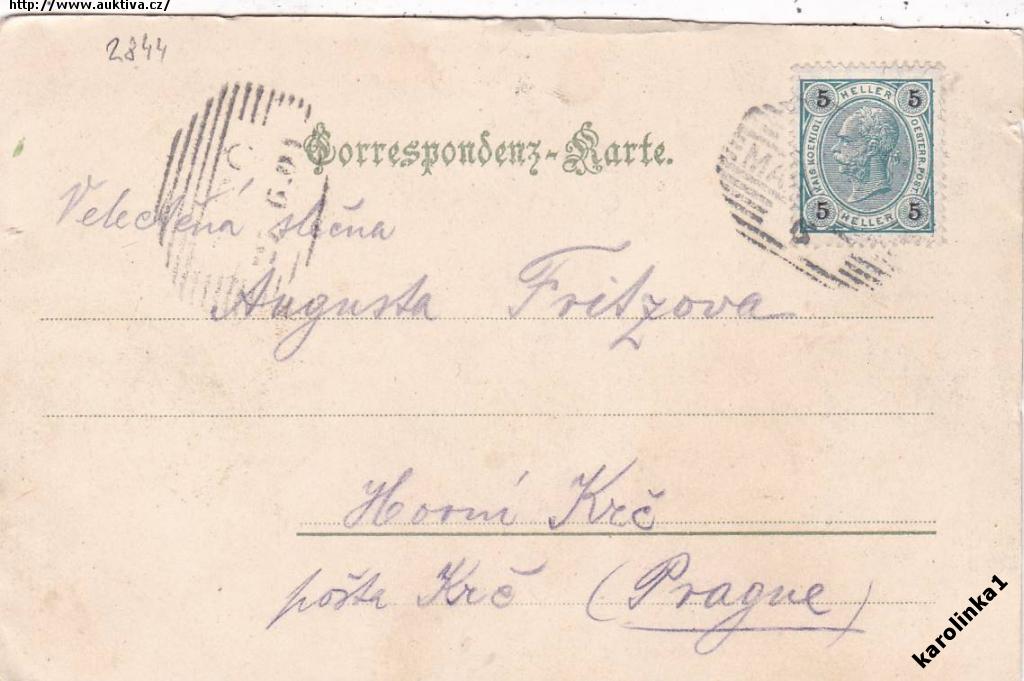 http://www.auktiva.cz/
2844
Correspondenz-Karte.
5 HELLER 5
KAIS. KOENIGL. OESTERR. POST.
5 HELLER 5
MA
Velectěná slečna
Augusta Fritzova
Horní Krč
pošta Krč (Prague)
karolinka1